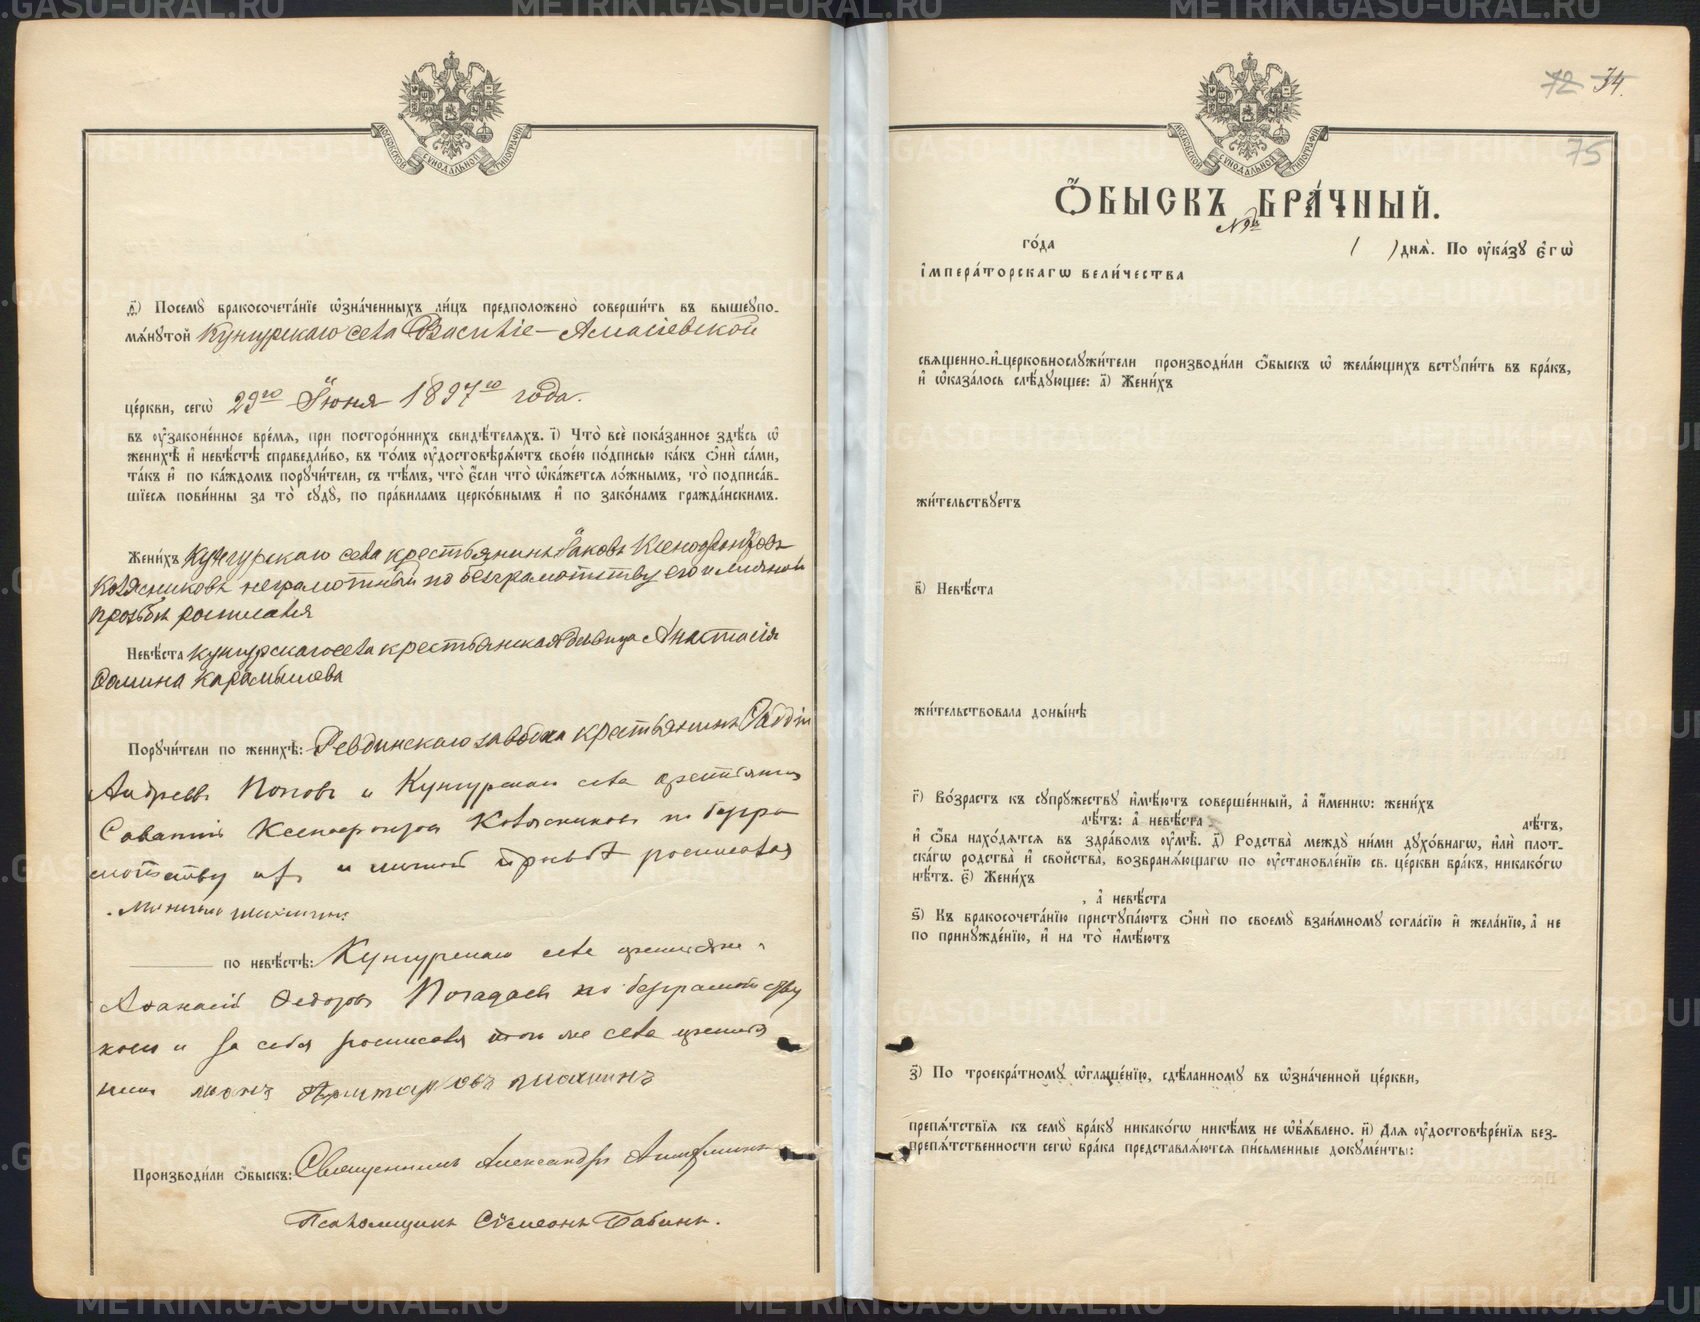 МОСКОВСКОЙ СѴНОДАЛЬНОЙ ТИПОГРАФІИ
д҃) Посемꙋ бракосочета́нїе ѡзна́ченныхъ ли́цъ предположено̀ соверши́ть въ вышеꙋпо-
мѧ́нꙋтой Кунгурскаго села Василіе-Амасіевской
це́ркви, сегѡ̀ 29го Іюня 1897го года.
въ ᲂу҆законе́нное вре́мѧ, при посторо́ннихъ свидѣ́телѧхъ. і҃) Что̀ всѐ пока́занное здѣ́сь ѡ҆
женихѣ̀ и҆ невѣ́стѣ справедли́во, въ то́мъ ᲂу҆достовѣрѧ́ютъ свое́ю по́дписью ка́къ ѻ҆нѝ са́ми,
та́къ и҆ по ка́ждомъ порꙋчи́тели, съ тѣ́мъ, что̀ є҆́сли что̀ ѡ҆ка́жетсѧ ло́жнымъ, то̀ подписа́в-
шїесѧ пови́нны за то̀ сꙋдꙋ̀, по пра́виламъ церко́внымъ и҆ по зако́намъ гражда́нскимъ.
Жени́хъ Кунгурскаго села крестьянинъ Іаковъ Ксенофонтовъ
Колясниковъ неграмотный по безграмотству его и личной
прозьбѣ росписался
Невѣ́ста Кунгурскаго села крестьянская девица Анастасія
Фомина Карамышева
Порꙋчи́тели по женихѣ̀: Ревдинскаго завода крестьянинъ Фаддей
Андреевъ Поповъ и Кунгурскаго села крестьянинъ
Саватій Ксенофонтов Колясниковъ по безгра
мотству их и личной прозьбѣ росписался
Шахминъ
по невѣ́стѣ: Кунгурскаго села крестьяне
Афанасій Федоровъ по безграмотству
коего и за себя росписался того же села крестья
нин Шахминъ
Производи́ли ѻ҆́быскъ: Священникъ Александръ
Псаломщикъ Сѵмеонъ Бабинъ.
72 74.
75
МОСКОВСКОЙ СѴНОДАЛЬНОЙ ТИПОГРАФІИ
Ѻ҆́БЫСКЪ БРА́ЧНЫЙ.
го́да ( ) днѧ̀. По ᲂу҆ка́зꙋ є҆гѡ̀
і҆мпера́торскагѡ вели́чества
свѧщенно-и҆-церковнослꙋжи́тели производи́ли ѻ҆́быскъ ѡ҆ жела́ющихъ встꙋпи́ть въ бра́къ,
и҆ ѡ҆каза́лось слѣ́дꙋющее: а҃) Жени́хъ
жи́тельствꙋетъ
в҃) Невѣ́ста
жи́тельствовала доны́нѣ
г҃) Во́зрастъ къ сꙋпрꙋ́жествꙋ и҆мѣ́ютъ соверше́нный, а҆ и҆́меннѡ: жени́хъ
лѣ́тъ: а҆ невѣ́ста лѣ́тъ,
и҆ ѻ҆́ба нахо́дѧтсѧ въ здра́вомъ ᲂу҆мѣ̀. д҃) Родства̀ междꙋ̀ ни́ми дꙋхо́внагѡ, и҆лѝ плот-
ска́гѡ родства̀ и҆ сво́йства, возбранѧ́ющагѡ по ᲂу҆становле́нїю св. це́ркви бра́къ, никако́гѡ
нѣ́тъ. є҃) Жени́хъ
, а҆ невѣ́ста
ѕ҃) Къ бракосочета́нїю пристꙋпа́ютъ ѻ҆нѝ по своемꙋ̀ взаи́мномꙋ согла́сїю и҆ жела́нїю, а҆ не
по принꙋжде́нїю, и҆ на то̀ и҆мѣ́ютъ
з҃) По троекра́тномꙋ ѡ҆глаше́нїю, сдѣ́ланномꙋ въ ѡ҆зна́ченной це́ркви,
препѧ́тствїѧ къ семꙋ̀ бра́кꙋ никако́гѡ никѣ́мъ не ѡ҆б̾ѧ́влено. и҃) Длѧ ᲂу҆достовѣре́нїѧ без-
препѧ́тственности сегѡ̀ бра́ка представлѧ́ютсѧ пи́сьменные докꙋме́нты:
METRIKI.GASU-URAL.RU